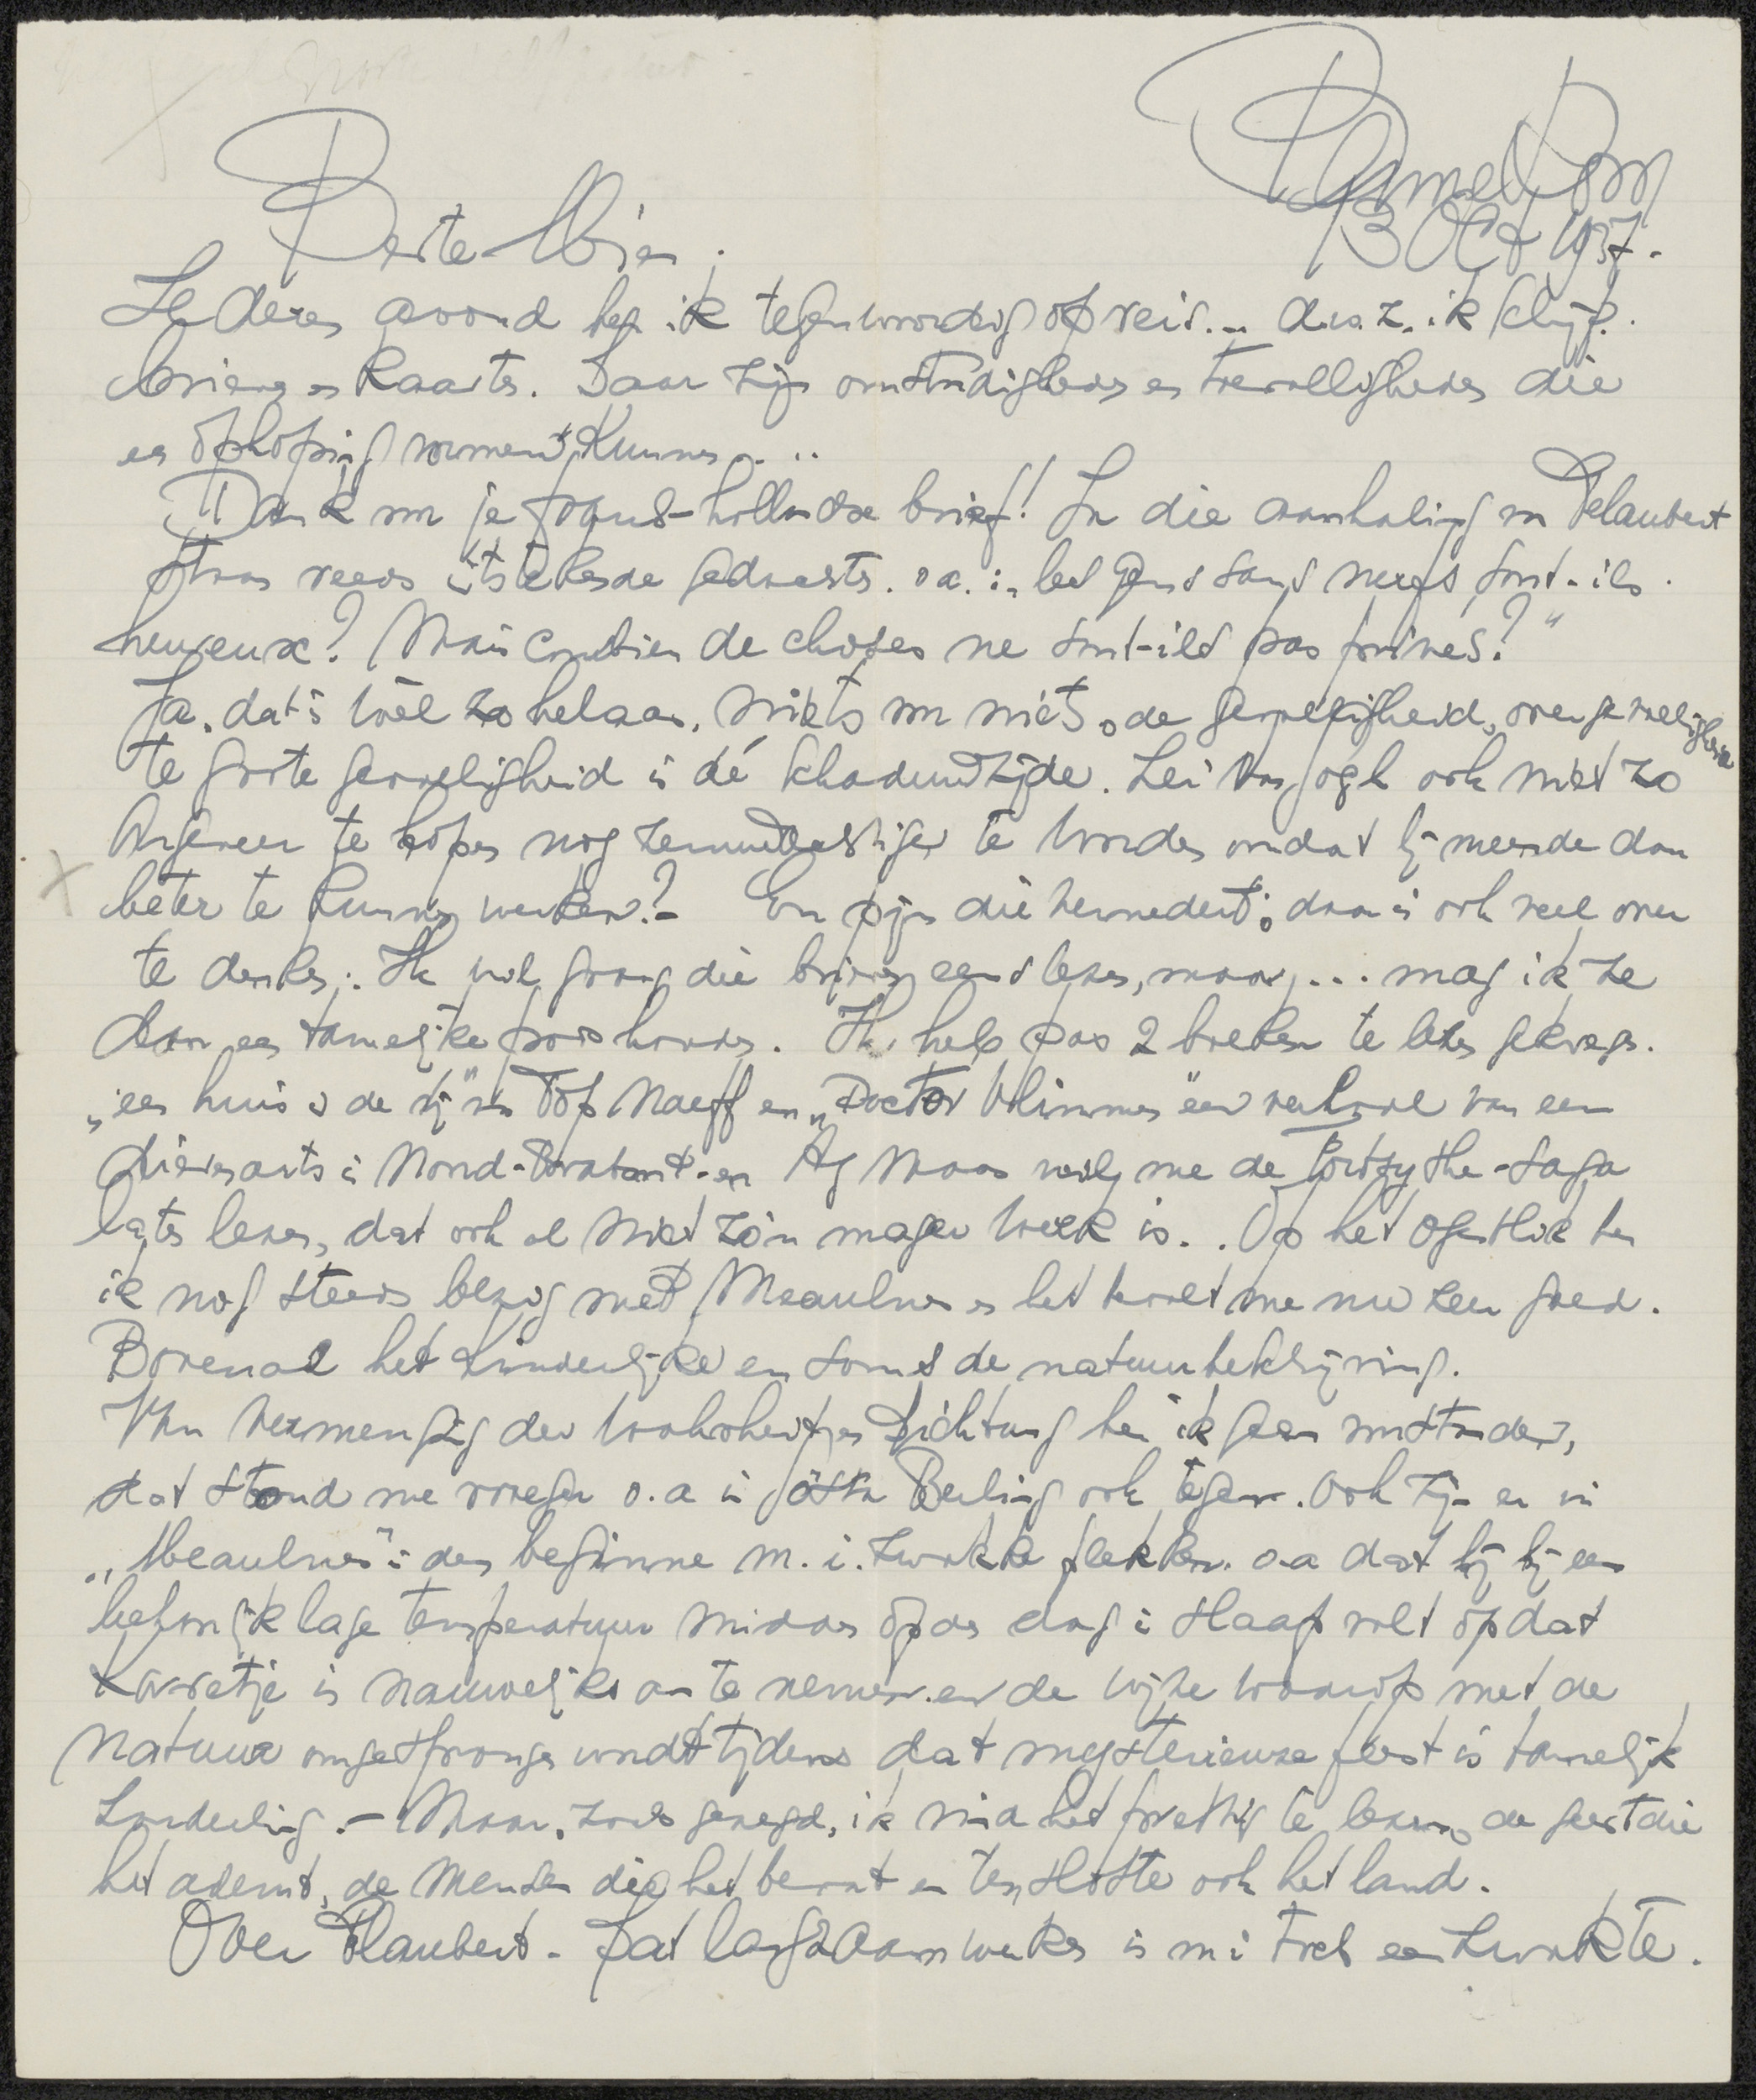 Beste Wien.
13 Oct 1937.
Iedere avond ben ik tegenwoordig op reis... d.w.z. ik schrijf
brieven en kaarten. Daar zijn omstandigheden en toevalligheden die
een ophoping vormen kunnen...
Dank voor je Frans-hollandse brief! In die aanhaling van Flaubert
staan reeds uitstekende gedachten. o.a. in les gens sans nerfs sont-ils
heureux? Mais combien de choses ne sont-ils pas privés?"
Ja, dat is wel zo helaas. niets om niets, de gevoeligheid, overgevoeligheid
te grote gevoeligheid is dé schaduwzijde. Zei van Gogh ook niet zo
ongeveer te hopen nog zenuwachtiger te worden omdat hij meende dan
beter te kunnen werken? - En pijn die vernedert; daar is ook veel over
te denken. Ik wil graag die brieven eens lezen, maar... mag ik ze
dan een tamelijke poos houden. Ik heb pas 2 boeken te lezen gekregen.
"een huis in de rij" van Top Naeff en "Doctor Vlimmen een verhaal van een
dierenarts in Noord-Brabant - en Ag Maas wil me de Forsythe-Saga
laten lezen, dat ook al niet zo'n mager werk is.. Op het ogenblik ben
ik nog steeds bezig met Meaulnes en het bevalt me nu zeer goed.
Bovenal het kinderlijke en soms de natuurbeschrijving.
Van vermenging der Wahrheit en Dichtung ben ik geen voorstander,
dat stond me vroeger o.a in Gösta Berling ook tegen. Ook zijn er in
"Meaulnes" in den beginne m.i. zwakke plekken. o.a dat hij bij een
behoorlijk lage temperatuur midden op den dag in slaap valt op dat
karretje is nauwelijks aan te nemen. en de wijze waarop met de
natuur omgesprongen wordt tijdens dat mysterieuze feest is tamelijk
zonderling. - Maar, zoals gezegd, ik vind het prettig te lezen, de geest die
het ademt, de mensen die het bevat en ten slotte ook het land.
Over Flaubert. Dat langzaam werken is m i toch een zwakte.